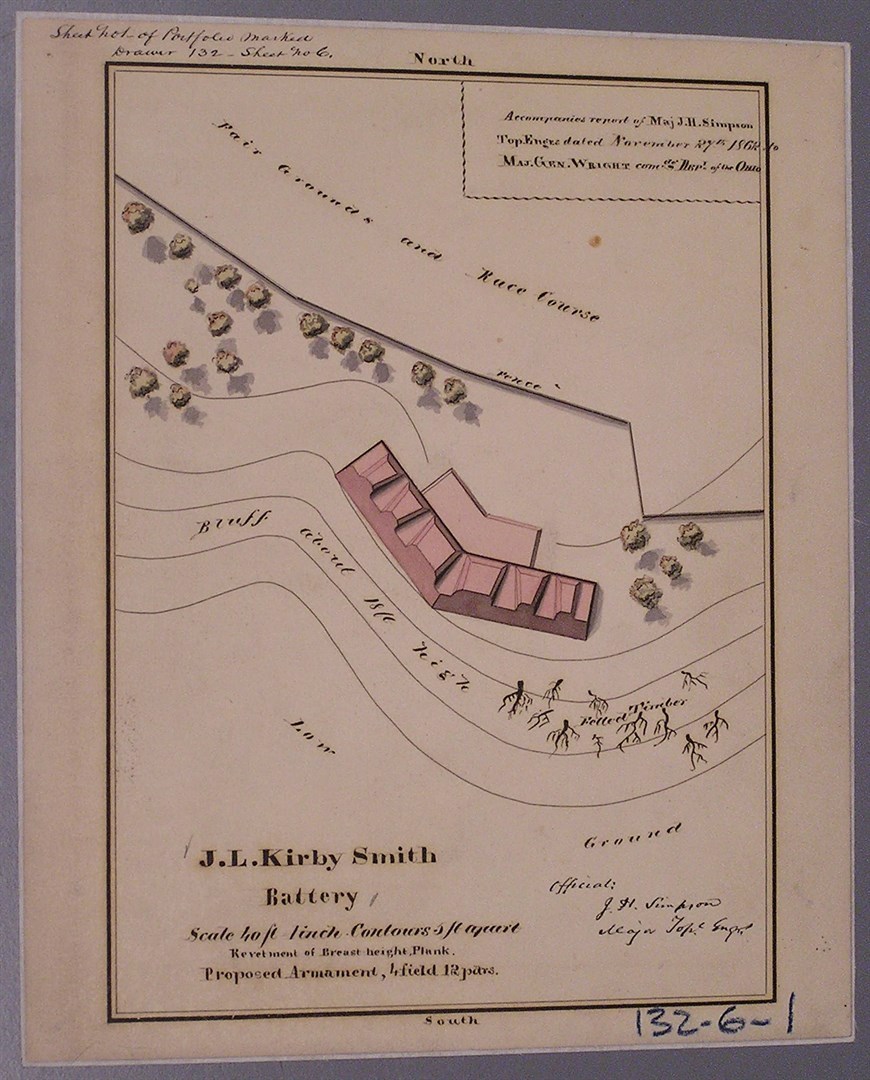 Sheet No 1 of Portfolio marked
Drawer 132 - Sheet No 6.
North
Accompanies report of Maj J.H. Simpson
Top. Engrs dated November 27th 1862 to
Maj. Gen. Wright com'gr Dept. of the Ohio
Fair Grounds and Race Course
Fence
Bluff about 18 ft high
Felled Timber
Low Ground
J.L. Kirby Smith
Battery
Scale 40 ft 1 inch Contours 5 ft apart
Revetment of Breast height, Plank.
Proposed Armament, 4 field 12 pdrs.
Official:
J. H. Simpson
Major Topl. Engrs
South
132-6-1